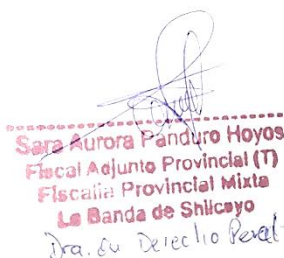 Sara Aurora Panduro Hoyos
Fiscal Adjunto Provincial (T)
Fiscalia Provincial Mixta
La Banda de Shilcayo
Dra. en Derecho Penal